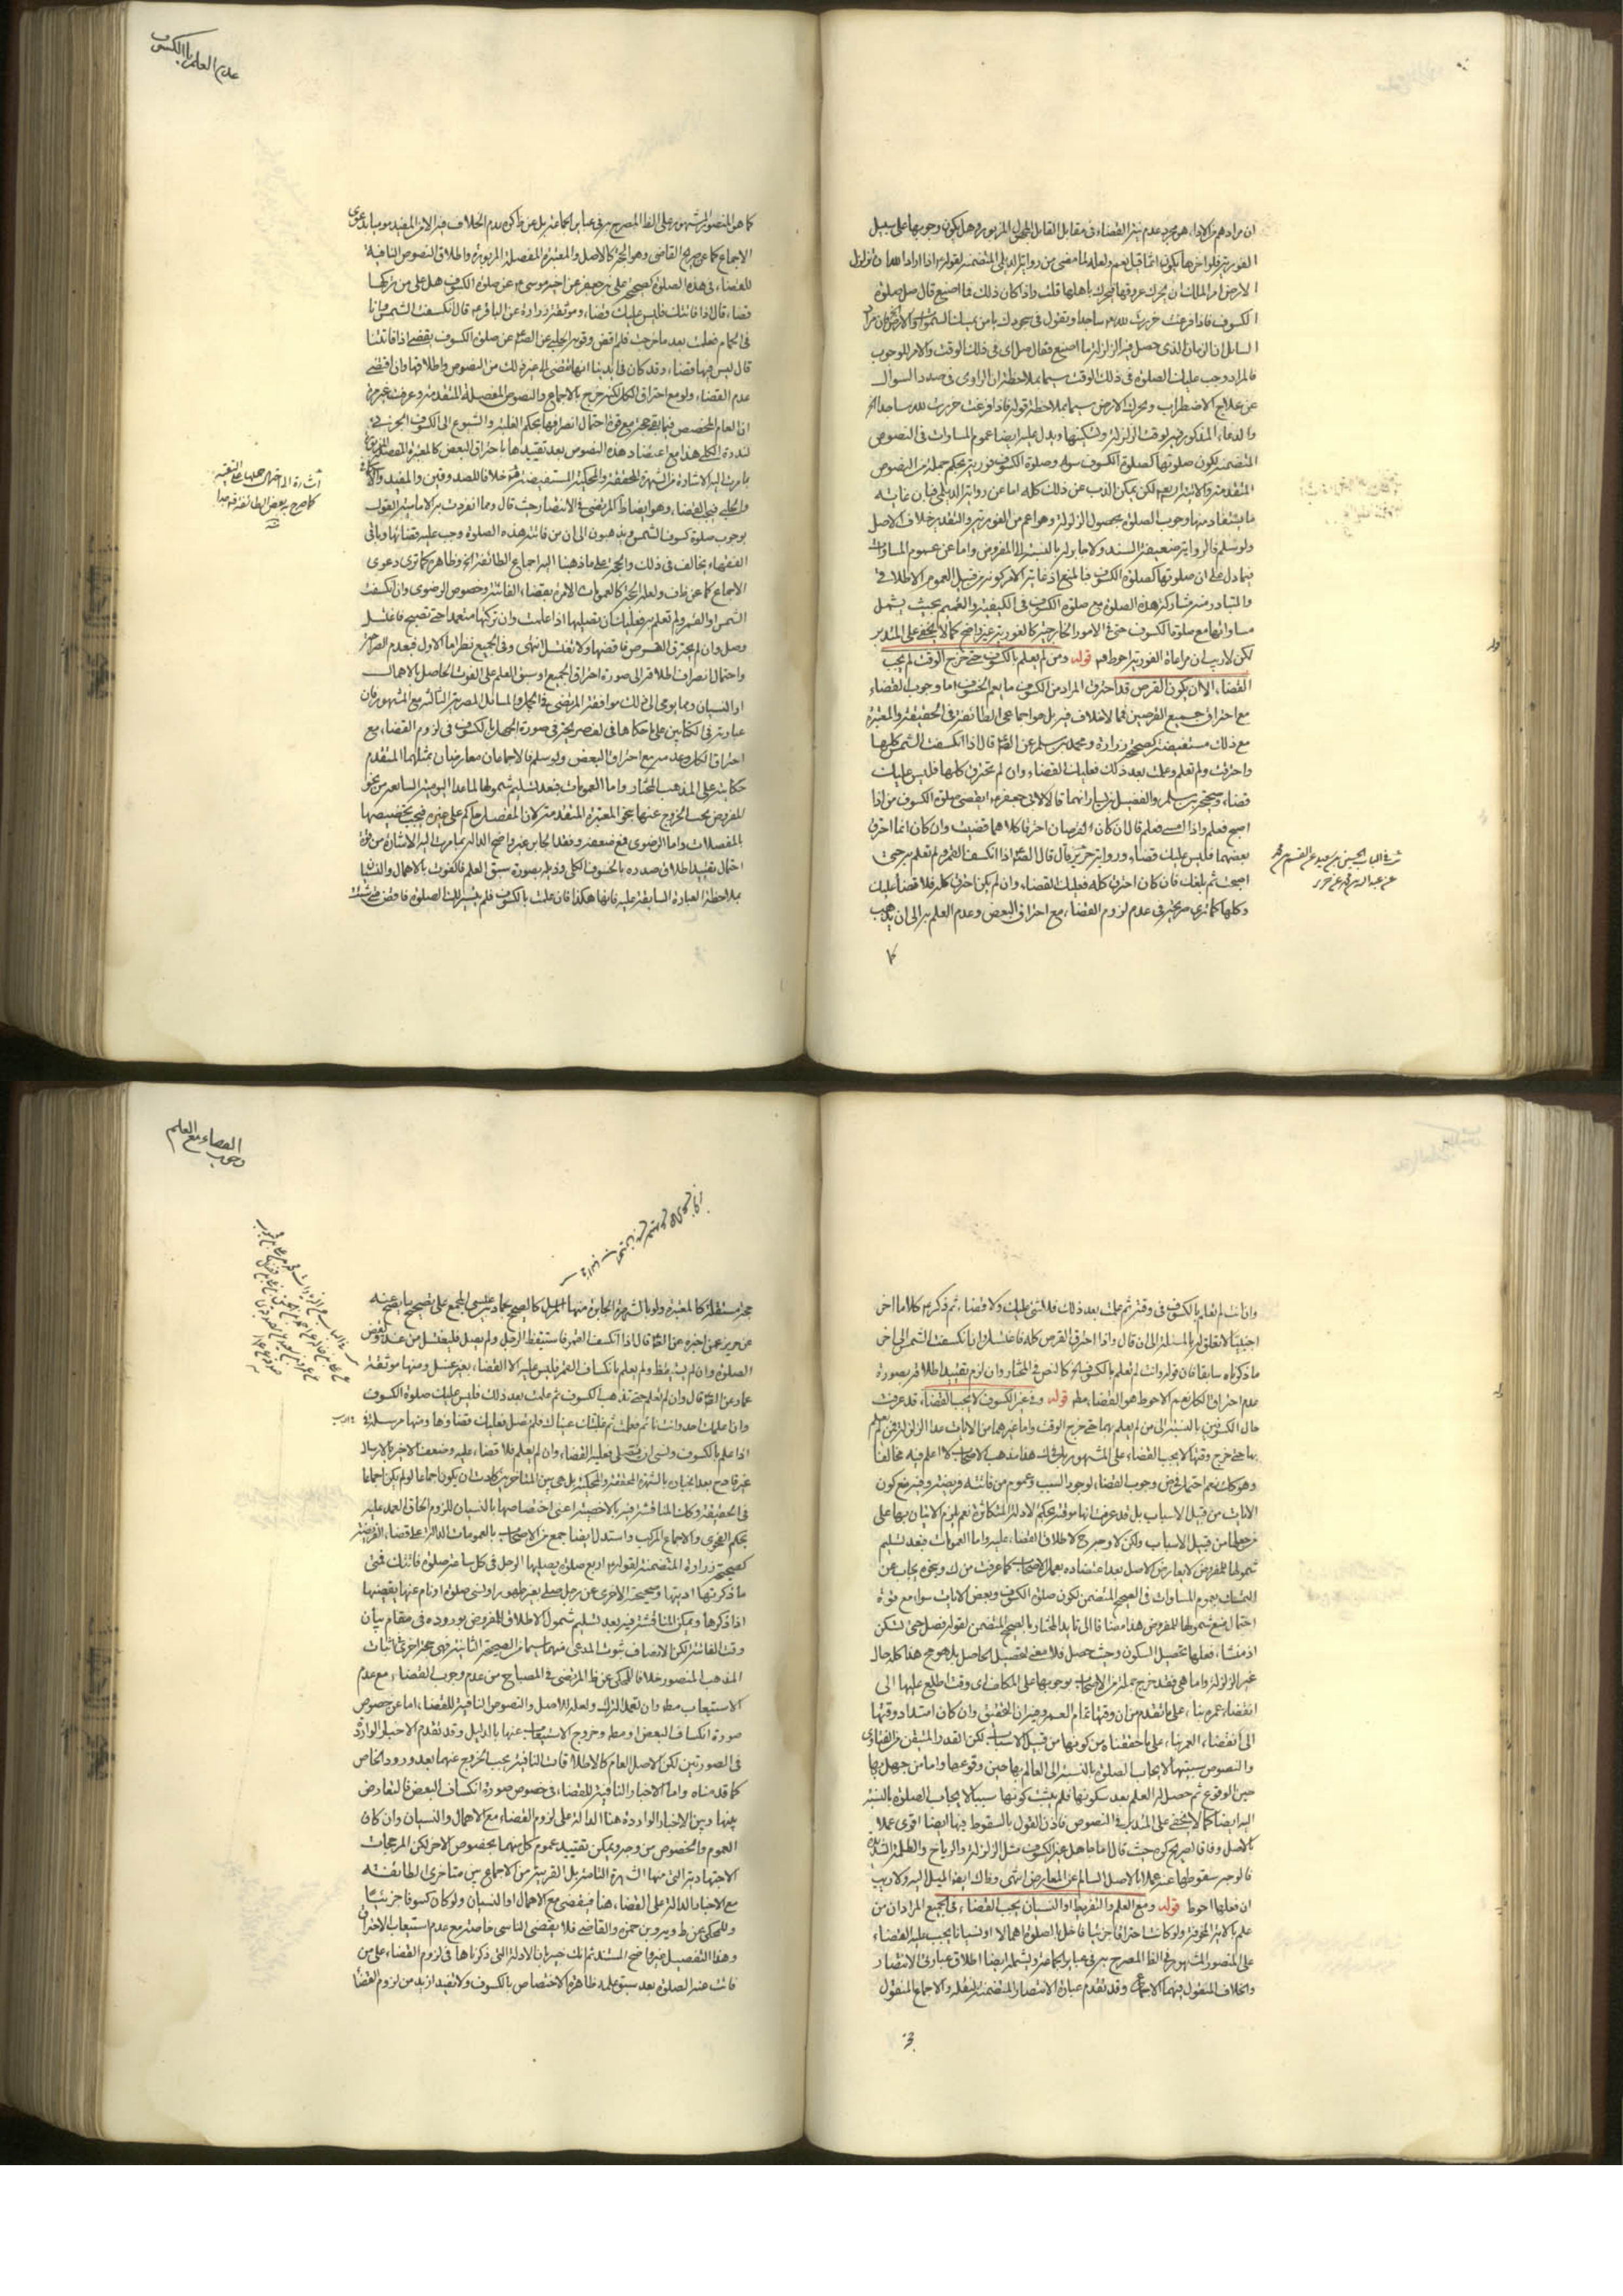 ان مرادهم من الاداء هو مجرد عدم نية القضاء في مقابل القابل المزبور وهل يكون وجوبها على سبيل
الفورية فلو اخرها يكون اثما قيل نعم ولعله لما مضى من رواية الديلمي المتضمنة لقوله اذا اراد الله ان يزلزل
الارض امر الملك ان يحرك عروقها فتحرك باهلها قلت واذا كان ذلك فما اصنع قال صل صلوة
الكسوف فاذا فرغت خررت لله ساجدا وتقول في سجودك يا من يمسك السموات والارض
السائل ان الزمان الذي حصل فيه الزلزلة ما اصنع فقال صل اي في ذلك الوقت والامر للوجوب
فالمراد وجب عليك الصلوة في ذلك الوقت سيما بملاحظة ان الراوي في صدد السؤال
عن علاج الاضطراب وتحرك الارض سيما بملاحظة قوله فاذا فرغت خررت لله ساجدا
والدعاء المذكور فيه لوقت الزلزلة وتسكينها ويدل عليه ايضا عموم المساوات في النصوص
المتضمنة لكون صلوتها كصلوة الكسوف سواء وصلوة الكسوف فورية بحكم جملة من النصوص
المتقدمة والاية لكن يمكن الذب عن ذلك كله اما عن رواية الديلمي فبان غاية
ما يستفاد منها وجوب الصلوة بحصول الزلزلة وهو اعم من الفورية والتقييد خلاف الاصل
ولو سلم فالرواية ضعيفة السند ولا جابر له بالنسبة الى المفروض واما عن عموم المساوات
فيما دل على ان صلوتها كصلوة الكسوف فبالمنع اذ غاية الامر كونه من قبيل العموم الاطلاقي
والمتبادر منه مشاركة هذه الصلوة مع صلوة الكسوف في الكيفية والتعميم بحيث يشمل
مساواتها مع صلوة الكسوف حتى في الامور الخارجية كالفورية غير واضح كما لا يخفى على المتدبر
لكن لا ريب ان مراعاة الفورية احوط قوله ومن لم يعلم بالكسوف حتى خرج الوقت لم يجب
القضاء الا ان يكون القرص قد احترق المراد من الكسوف ما يعم الخسوف اما وجوب القضاء
مع احتراق جميع القرصين فمما لا خلاف فيه بل هو اجماعي الطائفة في الحقيقة والمعتبرة
مع ذلك مستفيضة كصحيحة زرارة ومحمد بن مسلم عن القا قال اذا انكسفت الشمس كلها
واحترقت ولم تعلم وعلمت بعد ذلك فعليك القضاء وان لم تحترق كلها فليس عليك
قضاء وصحيحة بن مسلم والفضيل بن يسار انهما قالا لابي جعفر ايقضى صلوة الكسوف من اذا
اصبح فعلم واذا امسى فعلم قال ان كان القرصان احترقا كلاهما قضيت وان كان انما احترق
بعضهما فليس عليك قضاء ورواية حريز قال قال القا اذا انكسف القمر ولم تعلم به حتى
اصبحت ثم بلغك فان كان احترق كله فعليك القضاء وان لم يكن احترق كله فلا قضاء عليك
وكلها كما ترى صريحة في عدم لزوم القضاء مع احتراق البعض وعدم العلم به الى ان يذهب
كما
عدم العلم بالكسوف
كما هو المنصور المشهور على الظ المصرح به في عباير الجماعة بل عن التذكرة عدم الخلاف فيه
الاجماع كما عن صريح القاضي وهو الحجة كالاصل والمعتبرة المفصلة المزبورة واطلاق النصوص النافية
للقضاء في هذه الصلوة كصحيح علي بن جعفر عن اخيه موسى عن صلوة الكسوف هل على من تركها
قضاء قال اذا فاتتك فليس عليك قضاء وموثقة زرارة عن الباقر قال انكسفت الشمس وانا
في الحمام فعلمت بعد ما خرجت فلم اقض وقوية الحلبي عن الصا عن صلوة الكسوف يقضى اذا فاتتنا
قال ليس فيها قضاء وقد كان في ايدينا انها تقضى الى غير ذلك من النصوص واطلاقها وان اقتضى
عدم القضاء ولو مع احتراق الكل لكنه خرج بالاجماع والنصوص المفصلة المتقدمة وعرفت غير مرة
ان العام المخصص فيما بقى حجة مع قوة احتمال انصرافها بحكم الغلبة والشيوع الى الكسوف الجزئي
لندرة الكلي هذا مع اعتضاد هذه النصوص بعد تقييدها باحتراق البعض كالمعتبرة المفصلة المزبورة
بما مرت اليه الاشارة من الشهرة المحققة والمحكية المستفيضة خلافا للصدوقين والمفيد والاسكافي
والحلبي فيجب القضاء وهو ايضا ظ المرتضى في الانتصار حيث قال ومما انفردت به الامامية القول
بوجوب صلوة كسوف الشمس ويذهبون الى ان من فاتته هذه الصلوة وجب عليه قضائها وباقي
الفقهاء يخالف في ذلك والحجة على ما ذهبنا اليه اجماع الطائفة وظاهره كما ترى دعوى
الاجماع كما عن ولعله الحجة كالعمومات الامرة بقضاء الفائتة وخصوص الرضوي وان انكسفت
الشمس او القمر ولم تعلم به فعليك ان تصليها اذا علمت وان تركتها متعمدا حتى تصبح فاغتسل
وصل وان لم يحترق القرص فاقضها ولا تغتسل انتهى وفي الجميع نظر اما الاول فبعدم الصراحة
واحتمال انصراف اطلاقه الى صورة احتراق الجميع او سبق العلم على الفوت الحاصل بالاهمال
او النسيان ومما يومي الى ذلك موافقة المرتضى في الجمل والمسائل المصرية الثالثة مع المشهور فان
عبارته في الكتابين على ما حكاها في صريحة في صورة الجهل بالكسوف في لزوم القضاء مع
احتراق الكل وعدمه مع احتراق البعض ولو سلم فالاجماعان معارضان بمثلهما المتقدم
حكايته على المذهب المختار واما العمومات فبعد تسليم شمولها لما عدا اليومية السائغة من نحو
المفروض يجب الخروج عنها بنحو المعتبرة المتقدمة لان المفصل حاكم على غيره فيجب تخصيصها
بالمفصلات واما الرضوي فمع ضعفه وفقد الجابر غير واضح الدلالة بما مرت اليه الاشارة من قوة
احتمال تقييد اطلاق صدره بالخسوف الكلي وذيله بصورة سبق العلم فالفوت بالاهمال والنسيان
بملاحظة العبارة السابقة عليه فانها هكذا فان علمت بالكسوف فلم يتيسر لك الصلوة فاقض متى شئت
اشارة الى احتمال حملها على التقية
كما صرح به بعض الطائفة
وان انت لم تعلم بالكسوف في وقته ثم علمت بعد ذلك فلا شئ عليك ولا قضاء ثم ذكر كلاما اخر
اجنبيا لا تعلق له بالمسئلة الى ان قال واذا احترق القرص كله فاغتسل وان انكسفت الشمس الى اخر
ما ذكرناه سابقا فان قوله وانت لم تعلم بالكسوف كالنص في المختار وان لزم تقييد اطلاقه بصورة
عدم احتراق الكل نعم الاحوط هو القضاء مط قوله وفي غير الكسوف لا يجب القضاء قد عرفت
حال الكسوفين بالنسبة الى من لم يعلم بهما حتى خرج الوقت واما غيرهما من الايات عدا الزلزلة فمن لم يعلم
بها حتى خرج وقتها لا يجب القضاء على المشهور بل في هذا مذهب الاصحاب لا اعلم فيه مخالفا
وهو كك نعم احتمل في وجوب القضاء لوجود السبب وعموم من فاتته فريضة وفيه منع كون
الايات من قبيل الاسباب بل قد عرفت انها موقتة بحكم الادلة المتكاثرة نعم يلزم الاتيان بها على
من جعلها من قبيل الاسباب ولكن لا وجه لاطلاق القضاء عليه واما العمومات فبعد تسليم
شمولها للمفروض لا يعارض الاصل بعد اعتضاده بعمل الاصحاب كما عرفت من ك وبنحوه يجاب عن
التمسك بعموم المساوات في الصحيح المتضمن لكون صلوة الكسوف وبعض الايات سواء مع قوة
احتمال منع شمولها للمفروض هذا مضافا الى تايد المختار بالصحيح المتضمن لقوله فصل حتى تسكن
اذ منشا فعلها تحصيل السكون وحيث حصل فلا معنى لتحصيل الحاصل هذا كله حال
غير الزلزلة واما هي فقد خرج جملة من الاصحاب بوجوبها على المكلف اي وقت اطلع عليها الى
انقضاء عمره بناء على ما تقدم من ان وقتها تمام العمر وفيه ان التحقيق وان كان امتداد وقتها
الى انقضاء العمر بناء على ما حققناه من كونها من قبيل الاسباب لكن القدر المتيقن من الفتاوى
والنصوص سببيتها لايجاب الصلوة بالنسبة الى العالم بها حين وقوعها واما من جهل بها
حين الوقوع ثم حصل له العلم بعد سكونها فلم يثبت كونها سببا لايجاب الصلوة بالنسبة
اليه ايضا كما لا يخفى على المتدبر في النصوص فاذن القول بالسقوط فيها ايضا اقوى عملا
بالاصل وفاقا لصريح كره حيث قال اما جاهل غير الكسوف مثل الزلزلة والرياح والظلمة الشديدة
فالوجه سقوطها عنه عملا بالاصل السالم عن المعارض انتهى وظاك ايضا الميل اليه ولا ريب
ان فعلها احوط قوله ومع العلم والتفريط او النسيان يجب القضاء في الجميع المراد ان من
علم بالاية المخوفة ولو كانت احتراقا جزئيا فاخل بالصلوة اهمالا او نسيانا يجب عليه القضاء
على المنصور المشهور على الظ المصرح به في عباير الجماعة ويشمله ايضا اطلاق عبارتي الانتصار
والخلاف المنقول فيهما الاجماع وقد تقدم عبارة الانتصار المتضمنة لنقله والاجماع المنقول
وجوب القضاء مع العلم
حجة مستقلة كالمعتبرة ولو بالشهرة الجابرة منها المرسل كالصحيح بحماد بن عيسى المجمع على تصحيح ما يصح عنه
عن حريز عمن اخبره عن القا قال اذا انكسف القمر فاستيقظ الرجل ولم يصل فليغتسل من غد وليقض
الصلوة وان لم يستيقظ ولم يعلم بانكساف القمر فليس عليه الا القضاء بغير غسل ومنها موثقة
عمار عن القا قال وان لم تعلم حتى يذهب الكسوف ثم علمت بعد ذلك فليس عليك صلوة الكسوف
وان اعلمك احد وانت نائم فعلمت ثم غلبتك عيناك فلم تصل فعليك قضاؤها ومنها مرسلة
اذا علم بالكسوف ونسى ان يصلى فعليه القضاء وان لم يعلم فلا قضاء عليه وضعف الاخير بالارسال
غير قادح بعد انجباره بالشهرة المحققة والمحكية بل هي بين المتاخرين كادت ان يكون اجماعا لو لم يكن اجماعا
في الحقيقة وكذا المناقشة فيه بالاخصية اعني اختصاصها بالنسيان للزوم الحاق العمد عليه
بحكم الفحوى والاجماع المركب واستدل ايضا جمع من الاصحاب بالعمومات الدالة على قضاء الفريضة
كصحيحة زرارة المتضمنة لقوله اربع صلوة يصليها الرجل في كل ساعة صلوة فاتتك فمتى
ما ذكرتها اديتها وصحيحته الاخرى عن رجل صلى بغير طهور او نسى صلوة او نام عنها يقضيها
اذا ذكرها ويمكن المناقشة فيه بعد تسليم شمول الاطلاق للمفروض بوروده في مقام بيان
وقت الفائتة لكن الانصاف ثبوت المدعى منهما سيما من الصحيحة الثانية فهى حجة اخرى لاثبات
المذهب المنصور خلافا للمحكى عن ظ المرتضى في المصباح من عدم وجوب القضاء مع عدم
الاستيعاب مط وان تعمد الترك ولعله للاصل والنصوص النافية للقضاء اما عن خصوص
صورة انكساف البعض او مط وخروج الاستيعاب عنها بالدليل وقد تقدم الاخبار الواردة
في الصورتين لكن الاصل العام كالاطلاقات النافية يجب الخروج عنهما بعد ورود الخاص
كما قدمناه واما الاخبار النافية للقضاء في خصوص صورة انكساف البعض فالتعارض
بينها وبين الاخبار الواردة هنا الدالة على لزوم القضاء مع الاهمال والنسيان وان كان
العموم والخصوص من وجه ويمكن تقييد عموم كل منهما بخصوص الاخر لكن المرجحات
الاجتهادية التي منها الشهرة التامة بل القريبة من الاجماع بين متاخري الطائفة
مع الاخبار الدالة على القضاء هنا فيقضى مع الاهمال او النسيان ولو كان كسوفا جزئيا
وللمحكى عن ط ويه وبن حمزة والقاضي فلا يقضى الناسي خاصة مع عدم استيعاب الاحتراق
وهذا التفصيل غير واضح المستند ثم انك خبير بان الادلة التي ذكرناها في لزوم القضاء على من
فاتت عنه الصلوة بعد سبق علمه ظاهرة الاختصاص بالكسوف ولا تفيد ازيد من لزوم القضاء